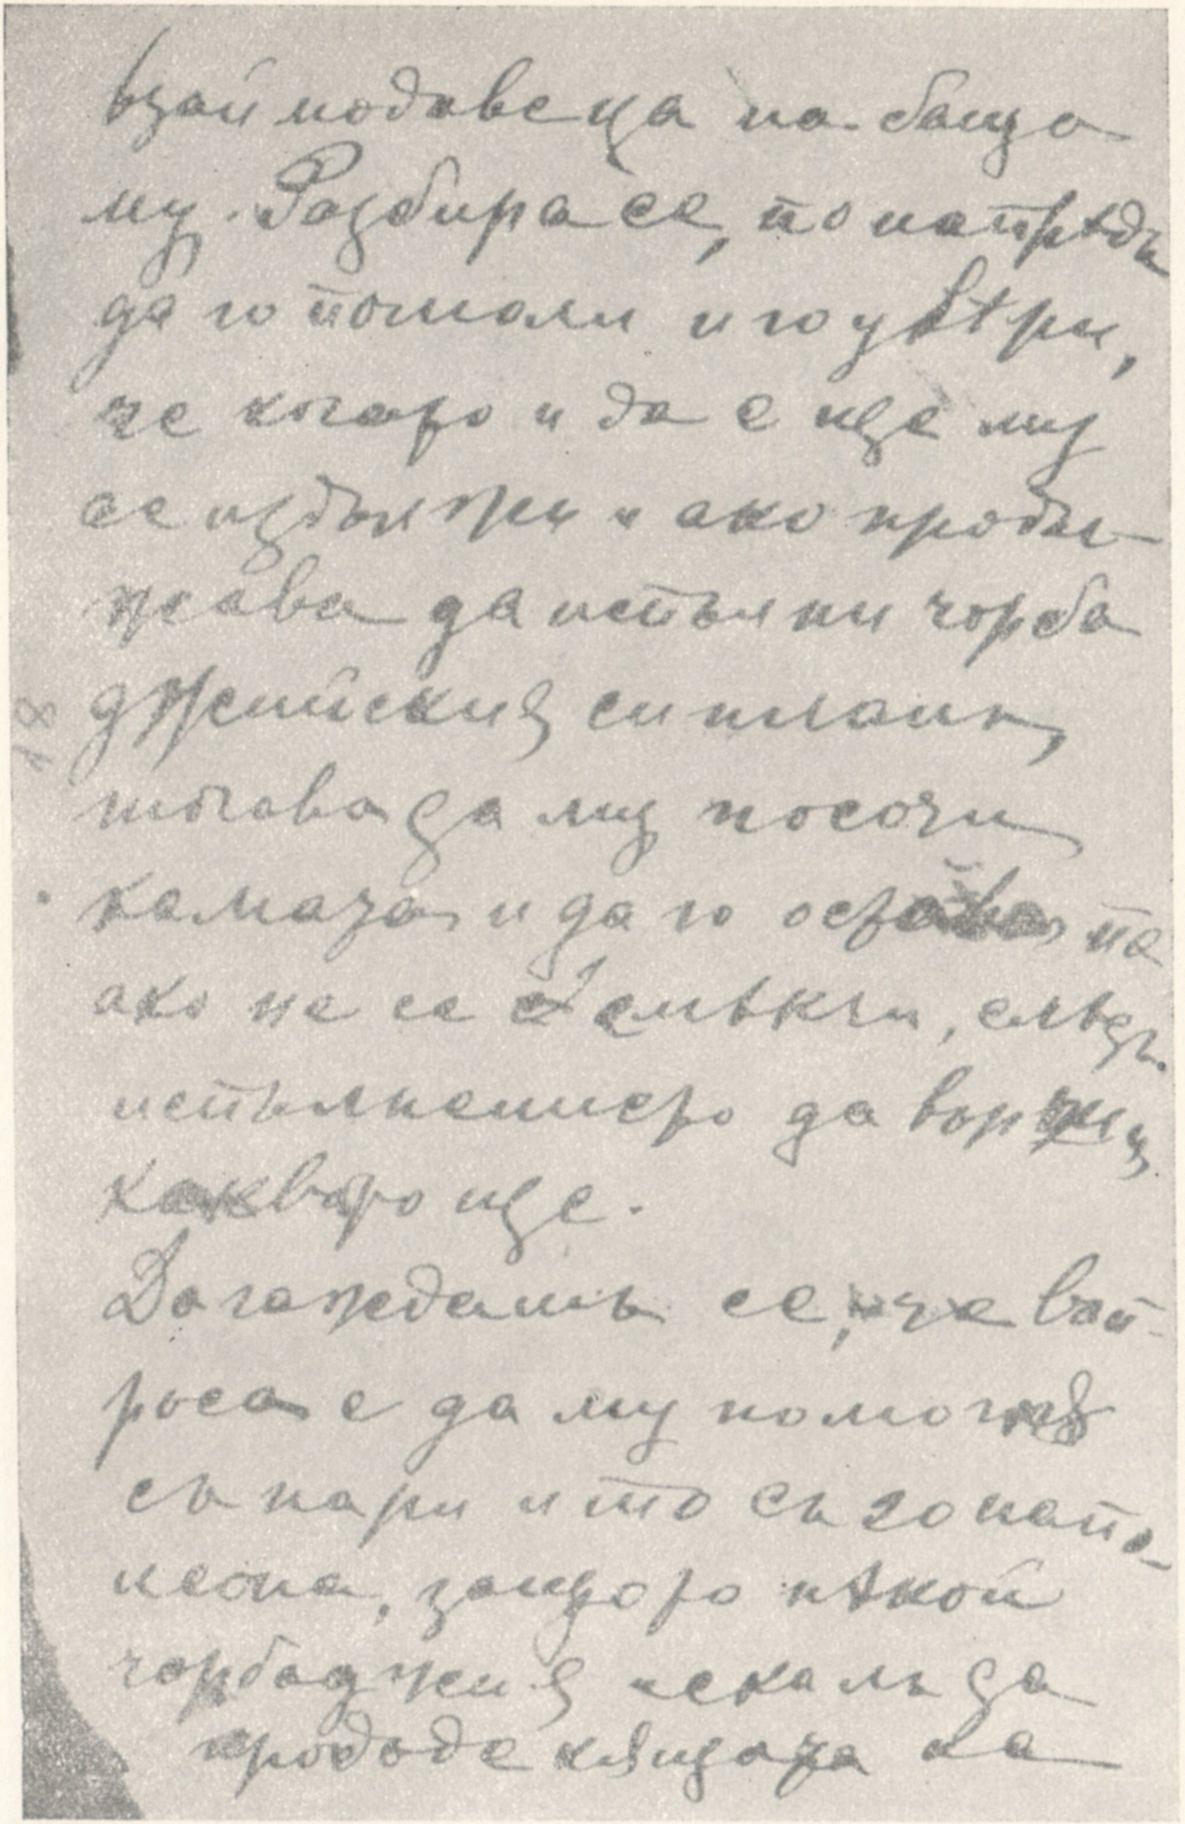 взаймодавеца на баща
му. Разбира се, по напрѣдъ
да го помоли и го увѣри,
че когато и да е ще му
се издължи и ако продъл-
жава да испълни чорба
джийския си планъ,
тогава да му посочи
камата и да го остави, па
ако не се смѣкчи, слѣдъ
испълнението да върши
каквото ще.
Догаждашъ се, че въп-
роса е да му помогнѫ
съ пари и то съ 20 напо-
леона, защото нѣкой
чорбаджия искалъ да
продаде кѫщата на
18